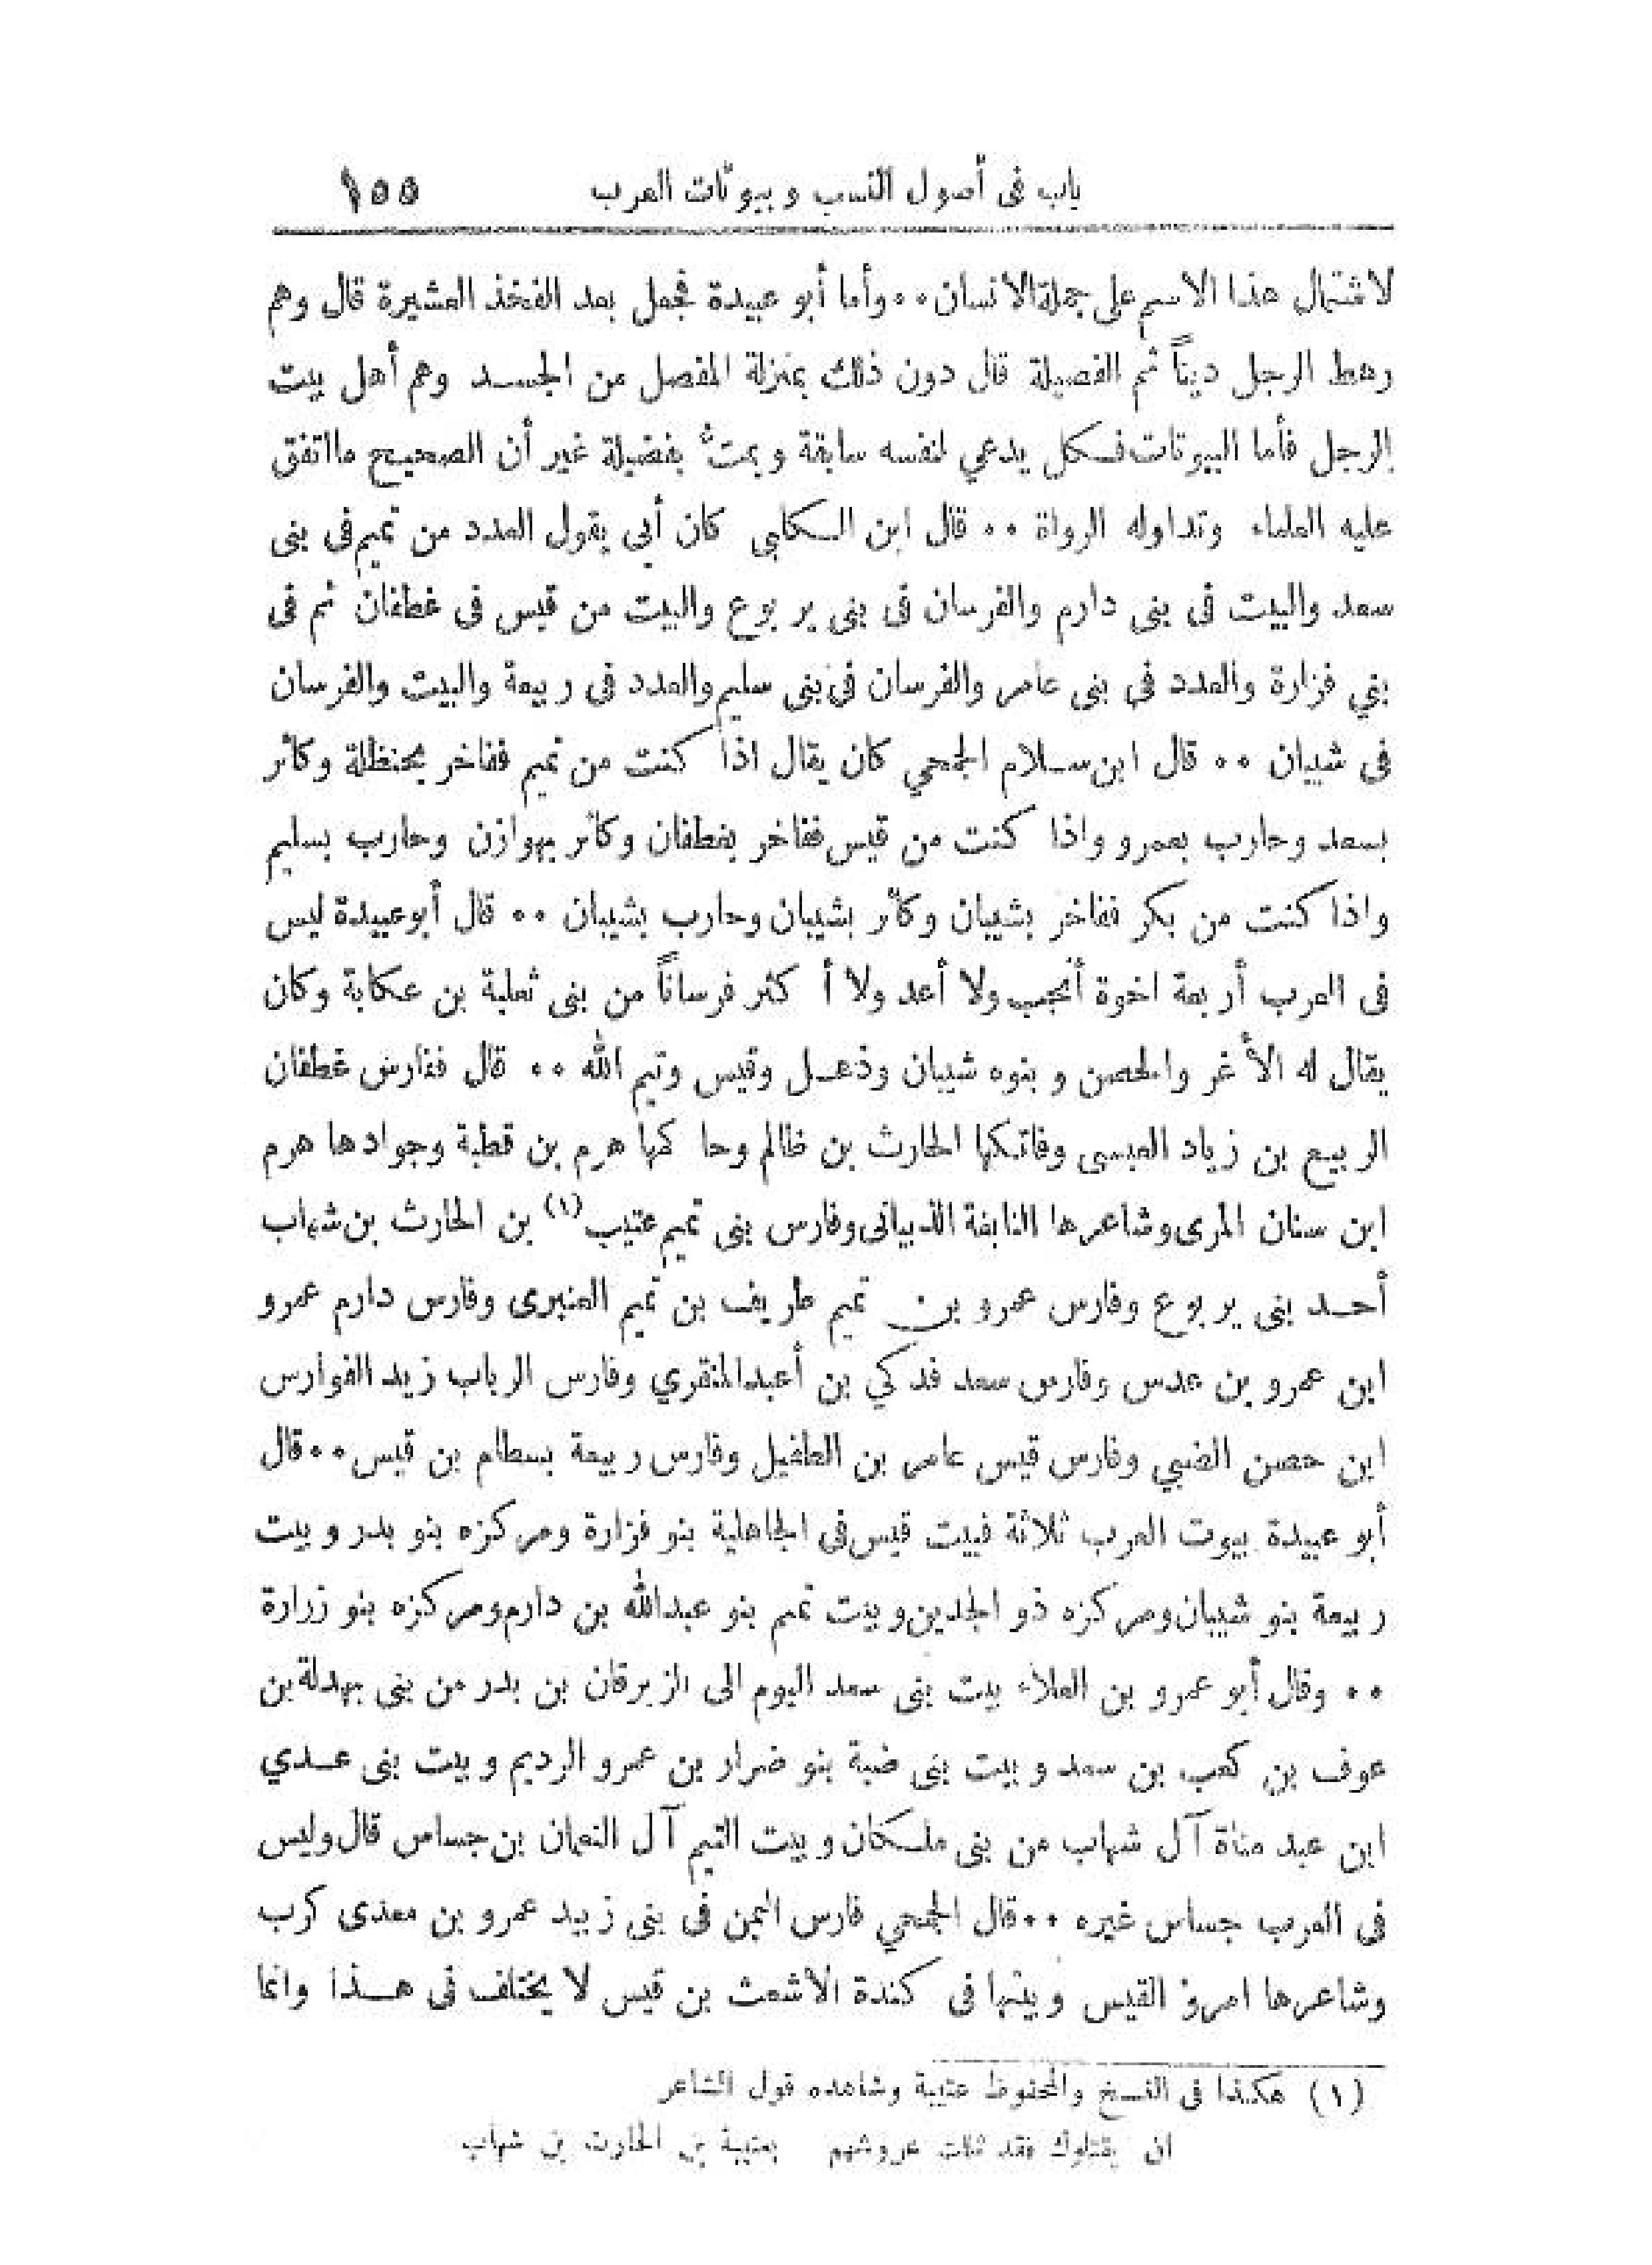 باب فى أصول النسب وبيوتات العرب ١٥٥
لاشتمال هذا الاسم على جملة الانسان ٠٠ وأما أبو عبيدة فجعل بعد الفخذ العشيرة قال وهم
رهط الرجل ديناً ثم الفصيلة قال دون ذلك بمنزلة المفصل من الجسد وهم أهل بيت
الرجل فأما البيوتات فكل يدعي لنفسه سابقة ويمتُّ بفضيلة غير أن الصحيح مااتفق
عليه العلماء وتداوله الرواة ٠٠ قال ابن الكلبى كان أبي يقول العدد من تميم فى بنى
سعد والبيت فى بنى دارم والفرسان فى بنى يربوع والبيت من قيس فى غطفان ثم فى
بني فزارة والعدد فى بنى عامر والفرسان فى بنى سليم والعدد فى ربيعة والبيت والفرسان
فى شيبان ٠٠ قال ابن سلام الجمحي كان يقال اذا كنت من تميم ففاخر بحنظلة وكاثر
بسعد وحارب بعمرو واذا كنت من قيس ففاخر بغطفان وكاثر بهوازن وحارب بسليم
واذا كنت من بكر ففاخر بشيبان وكاثر بشيبان وحارب بشيبان ٠٠ قال أبو عبيدة ليس
فى العرب أربعة اخوة أنجب ولا أعد ولا أكثر فرساناً من بنى ثعلبة بن عكابة وكان
يقال له الأغر والحصن وبنوه شيبان وذهل وقيس وتيم الله ٠٠ قال ففارس غطفان
الربيع بن زياد العبسى وفاتكها الحارث بن ظالم وحاكمها هرم بن قطبة وجوادها هرم
ابن سنان المرى وشاعرها النابغة الذبيانى وفارس بنى تميم عتيب (١) بن الحارث بن شهاب
أحد بنى يربوع وفارس عمرو بن تميم طريف بن تميم العنبرى وفارس دارم عمرو
ابن عمرو بن عدس وفارس سعد فدكي بن أعبد المنقري وفارس الرباب زيد الفوارس
ابن حصن الضبي وفارس قيس عامر بن الطفيل وفارس ربيعة بسطام بن قيس ٠٠ قال
أبو عبيدة بيوت العرب ثلاثة فبيت قيس فى الجاهلية بنو فزارة ومركزه بنو بدر وبيت
ربيعة بنو شيبان ومركزه ذو الجدين وبيت تميم بنو عبدالله بن دارم ومركزه بنو زرارة
٠٠ وقال أبو عمرو بن العلاء بيت بنى سعد اليوم الى الزبرقان بن بدر من بنى بهدلة بن
عوف بن كعب بن سعد وبيت بنى ضبة بنو ضرار بن عمرو الرديم وبيت بنى عدي
ابن عبد مناة آل شهاب من بنى ملكان وبيت التيم آل النعمان بن جساس قال وليس
فى العرب جساس غيره ٠٠ قال الجمحي فارس اليمن فى بنى زبيد عمرو بن معدى كرب
وشاعرها امرؤ القيس وبيتها فى كندة الأشعث بن قيس لا يختلف فى هذا وانما
(١) هكذا فى النسخ والمحفوظ عتيبة وشاهده قول الشاعر
ان يقتلوك فقد ثللت عروشهم بعتيبة بن الحارث بن شهاب